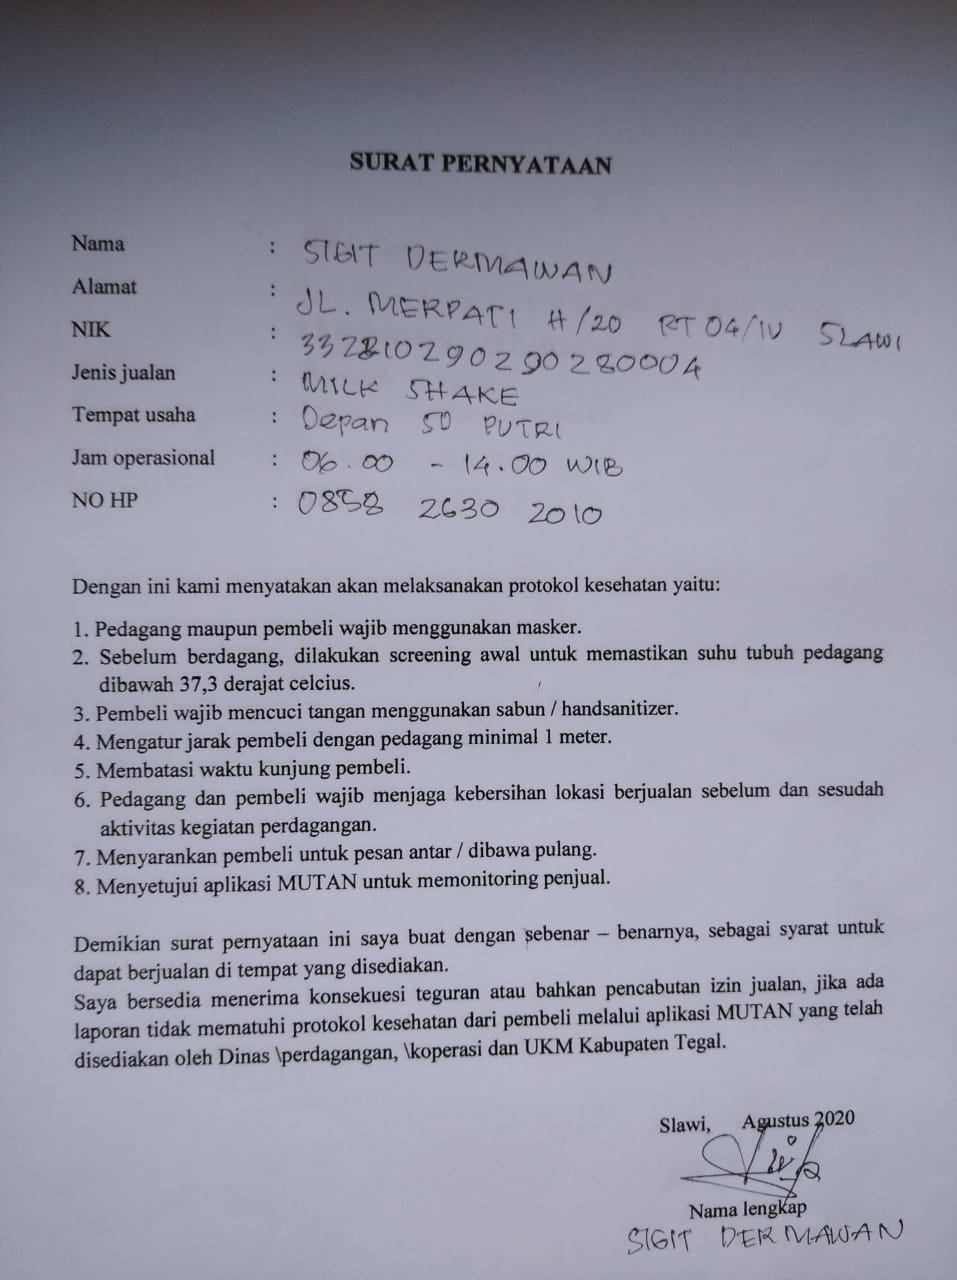 SURAT PERNYATAAN
Nama : SIGIT DERMAWAN
Alamat : JL. MERPATI H/20 RT 04/IV SLAWI
NIK : 332810290290280004
Jenis jualan : MILK SHAKE
Tempat usaha : Depan SD PUTRI
Jam operasional : 06.00 - 14.00 WIB
NO HP : 0858 2630 2010
Dengan ini kami menyatakan akan melaksanakan protokol kesehatan yaitu:
1. Pedagang maupun pembeli wajib menggunakan masker.
2. Sebelum berdagang, dilakukan screening awal untuk memastikan suhu tubuh pedagang
dibawah 37,3 derajat celcius.
3. Pembeli wajib mencuci tangan menggunakan sabun / handsanitizer.
4. Mengatur jarak pembeli dengan pedagang minimal 1 meter.
5. Membatasi waktu kunjung pembeli.
6. Pedagang dan pembeli wajib menjaga kebersihan lokasi berjualan sebelum dan sesudah
aktivitas kegiatan perdagangan.
7. Menyarankan pembeli untuk pesan antar / dibawa pulang.
8. Menyetujui aplikasi MUTAN untuk memonitoring penjual.
Demikian surat pernyataan ini saya buat dengan sebenar – benarnya, sebagai syarat untuk
dapat berjualan di tempat yang disediakan.
Saya bersedia menerima konsekuesi teguran atau bahkan pencabutan izin jualan, jika ada
laporan tidak mematuhi protokol kesehatan dari pembeli melalui aplikasi MUTAN yang telah
disediakan oleh Dinas \perdagangan, \koperasi dan UKM Kabupaten Tegal.
Slawi, Agustus 2020
Nama lengkap
SIGIT DERMAWAN